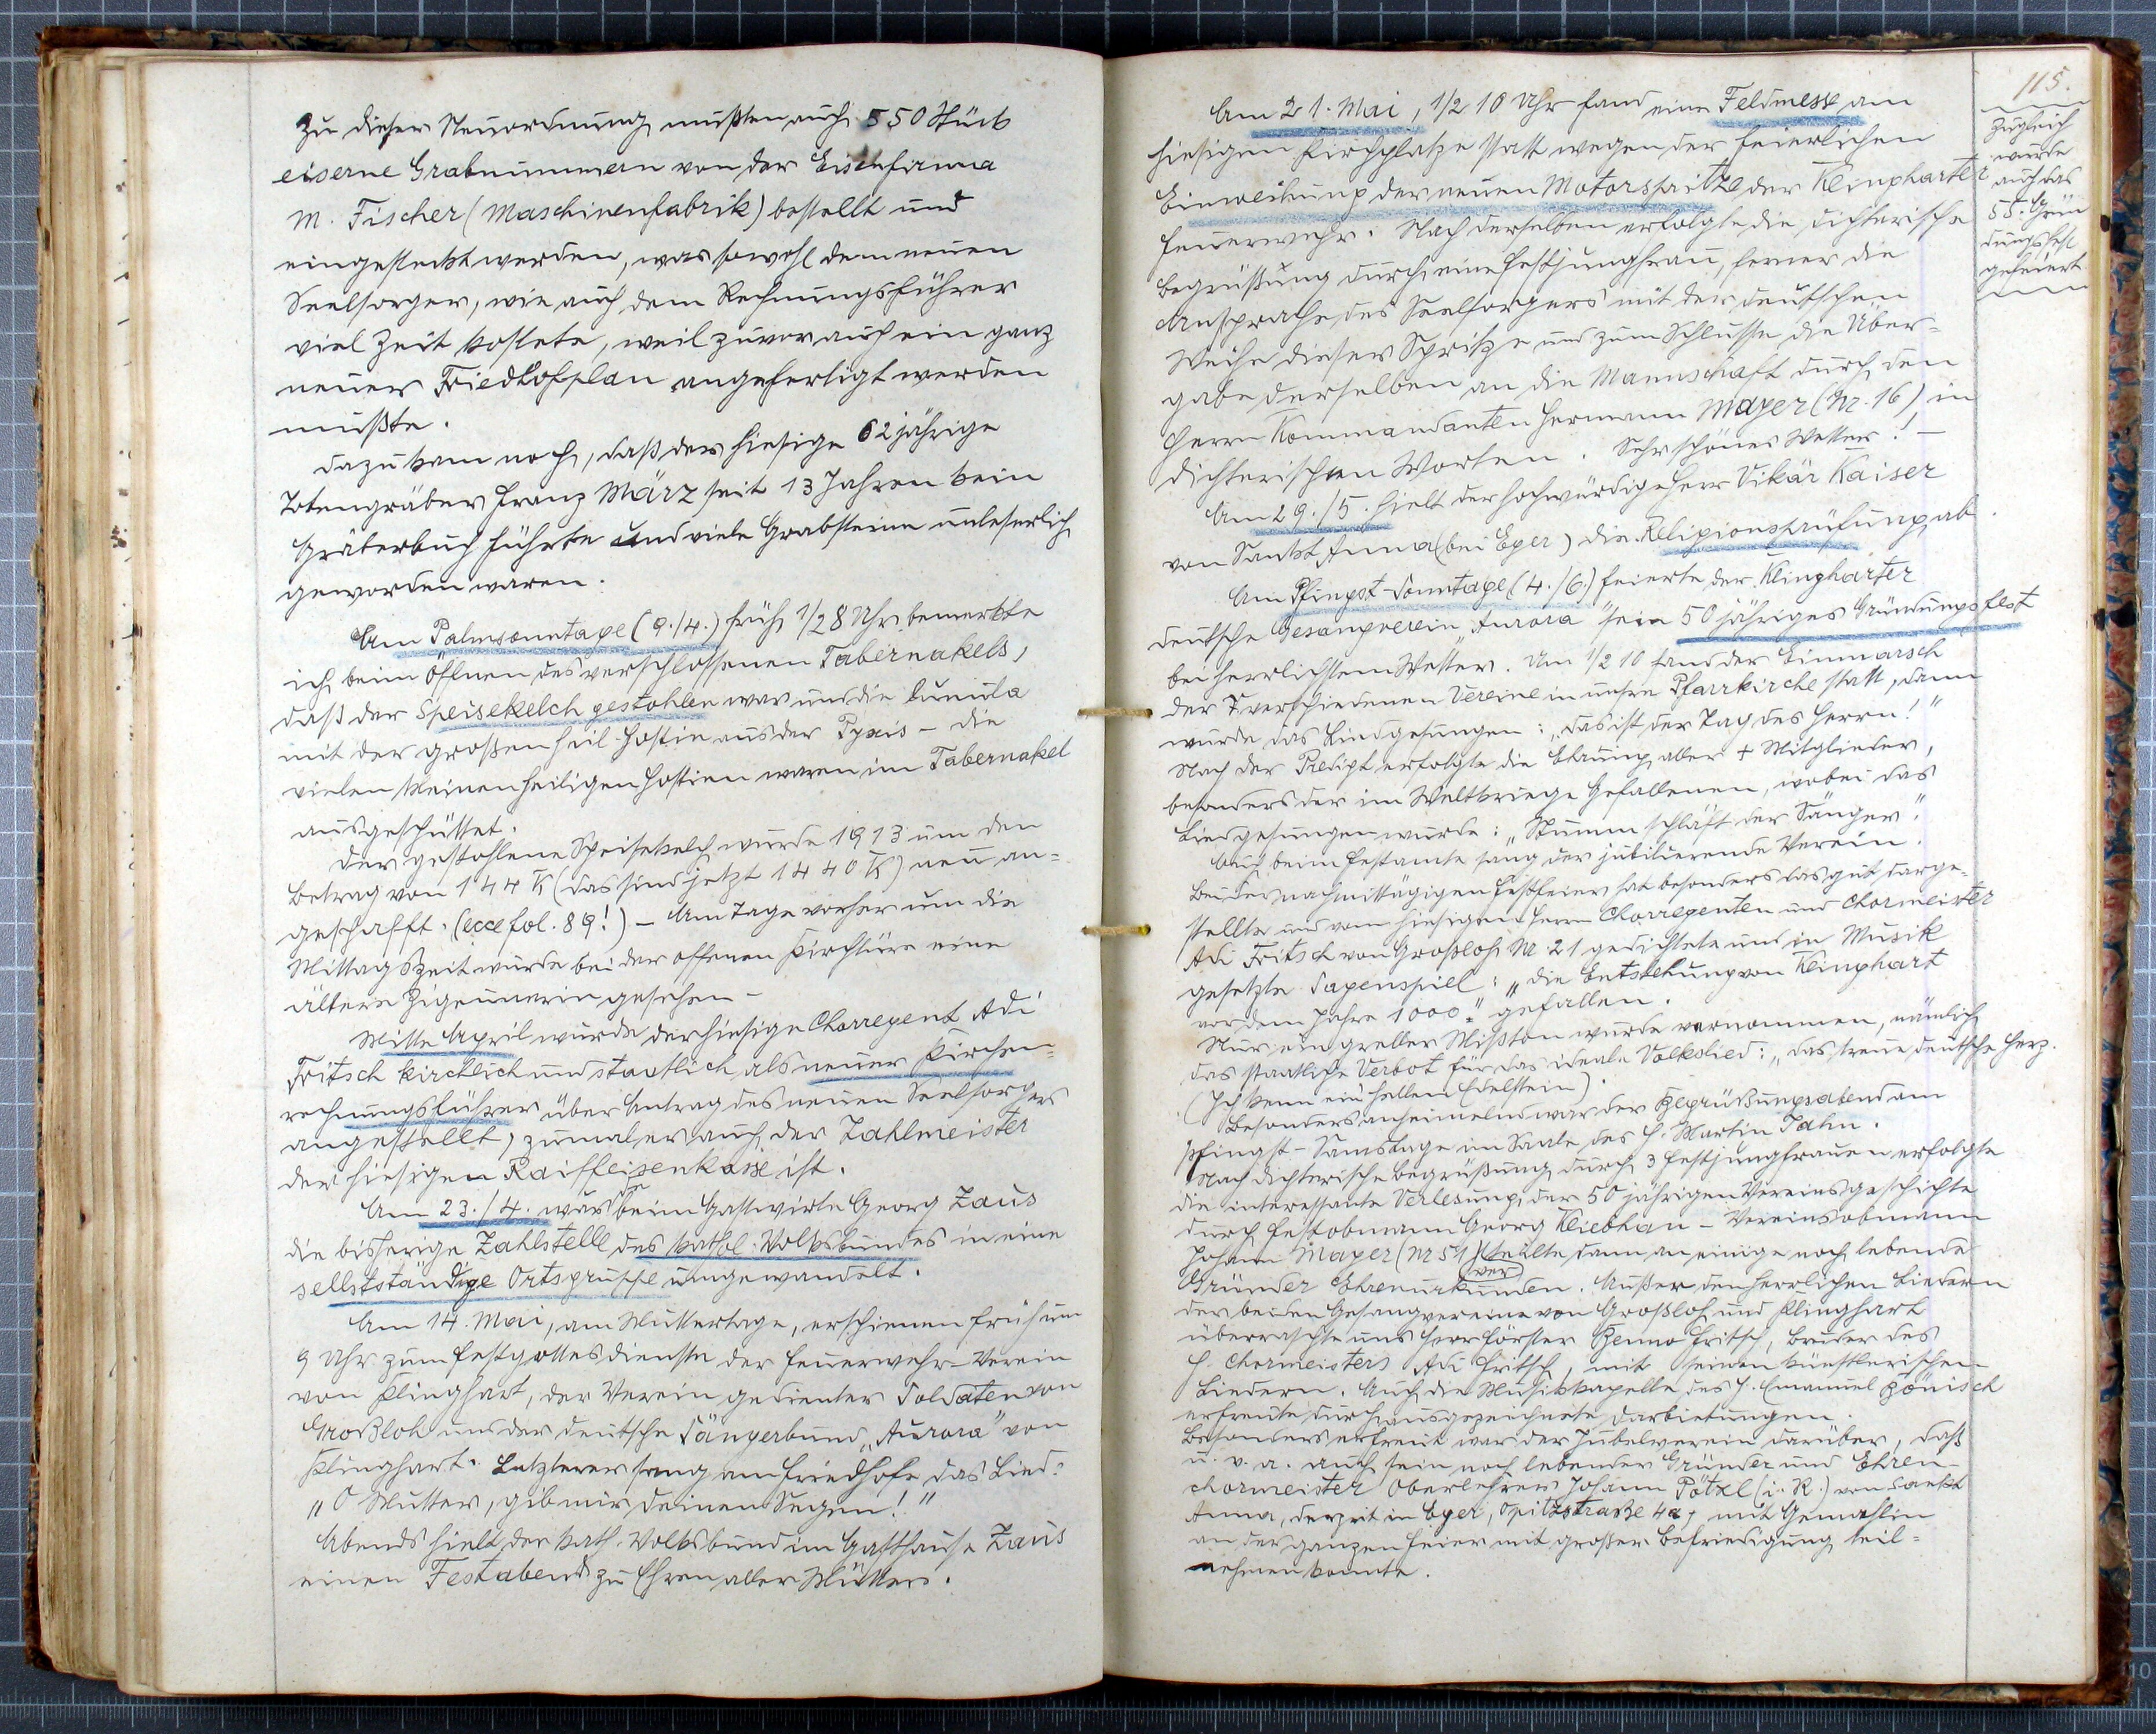 Zu dieser Neuordnung mußten auch 550 Stück
eiserne Grabnummern von der Eisenfirma
M. Fischer (Maschinenfabrik) bestellt und
eingesteckt werden, was sowohl dem neuen
Seelsorger, wie auch dem Rechnungsführer
viel Zeit kostete, weil zuvor auch ein ganz
neuer Friedhofplan angefertigt werden
mußte.
Dazu kam noch, daß der hiesige 62 jährige
Totengräber Franz März seit 13 Jahren kein
Gräberbuch führte und viele Grabsteine unleserlich
geworden waren.
Am Palmsonntage (9./4.) früh 1/28 Uhr bemerkte
ich beim Öffnen des verschlossenen Tabernakels,
daß der Speisekelch gestohlen war und die Lunula
mit der großen heil. Hostie aus der Pyxis – die
vielen kleinen heiligen Hostien waren im Tabernakel
ausgeschüttet.
Der gestohlene Speisekelch wurde 1913 um den
Betrag von 144 K (das sind jetzt 1440 K) neu an-
geschafft. (ecce fol. 89!) – Am Tage vorher um die
Mittagszeit wurde bei der offenen Kirchtüre eine
ältere Zigeunerin gesehen –
Mitte April wurde der hiesige Chorregent Adi
Fritsch kirchlich und staatlich als neuer Kirchen-
rechnungsführer über Antrag des neuen Seelsorgers
angestellt, zumal er auch der Zahlmeister
der hiesigen Raiffeisenkasse ist.
Am 23./4. wurde beim Gastwirte Georg Zaus
die bisherige Zahlstelle des kathol. Volksbundes in eine
sellstständige Ortsgruppe umgewandelt.
Am 14. Mai, am Muttertage, erschienen früh um
9 Uhr zum Festgottesdienste der Feuerwehr-Verein
von Klinghart, der Verein gedienter Soldaten von
Großloh und der deutsche Sängerbund „Aurora" von
Klinghart. Letzterer sang am Friedhofe das Lied:
„O Mutter, gib mir deinen Segen!"
Abends hielt der kath. Volksbund im Gasthause Zaus
einen Festabend zu Ehren aller Mütter.
115.
Am 21. Mai, 1/2 10 Uhr fand eine Feldmesse am
hiesigen Kirchplatze statt wegen der feierlichen
Einweihung der neuen Motorspritze der Klingharter
Feuerwehr. Nach derselben erfolgte die dichterische
Begrüßung durch eine Festjungfrau, ferner die
Ansprache des Seelsorgers mit der deutschen
Weihe dieser Spritze und zum Schlusse die Über-
gabe derselben an die Mannschaft durch den
Herrn Kommandanten Hermann Mayer (Nr. 16) in
dichterischen Worten. Sehr schönes Wetter! –
Zugleich
wurde
auch das
55. Grün
dungsfest
gefeiert
Am 29./5. hielt der hochwürdige Herr Vikär Kaiser
von Sankt Anna (bei Eger) die Religionsprüfung ab.
Am Pfingst-Sonntage (4./6.) feierte der Klingharter
deutsche Gesangverein „Aurora" sein 50 jähriges Gründungsfest
bei herrlichstem Wetter. Um 1/2 10 fand der Einmarsch
der 7 verschiedenen Vereine in unsre Pfarrkirche statt, dann
wurde das Lied gesungen: „Das ist der Tag des Herrn!"
Nach der Predigt erfolgte die Ehrung aller + Mitglieder,
besonders der im Weltkriege Gefallenen, wobei das
Lied gesungen wurde: „Stumm schläft der Sänger".
Auch beim Festamte sang der jubilierende Verein.
Bei der nachmittägigen Festfeier hat besonders das gut darge-
stellte und vom hiesigen Herrn Chorregenten und Chormeister
Adi Fritsch von Großloh Nr. 21 gedichtete und in Musik
gesetzte Sagenspiel: „Die Entstehung von Klinghart
vor dem Jahre 1000" gefallen.
Nur ein greller Mißton wurde vernommen, nämlich
das staatliche Verbot für das ideale Volkslied: „Das treue deutsche Herz.
(Ich kenn ein' hellen Edelstein).
Besonders anheimelnd war der Begrüßungsabend am
Pfingst-Samstage im Saale des H. Martin Jahn.
Nach dichterische Begrüßung durch 3 Festjungfrauen erfolgte
die interessante Verlesung der 50 jährigen Vereinsgeschichte
durch Festobmann Georg Kliebhan – Vereinsobmann
Johann Mayer (Nr 51) (ver)teilte dann an einige noch lebende
Gründer Ehrenurkunden. Außer den herrlichen Liedern
der beiden Gesangvereine von Großloh und Klinghart
überraschte uns Herr Förster Benno Fritsch, Bruder des
H. Chormeisters Adi Fritsch, mit seinen künstlerischen
Liedern. Auch die Musikkapelle des H. Emanuel Bönisch
erfreute durch ausgezeichnete Darbietungen.
Besonders erfreut war der Jubelverein darüber, daß
u. v. a. auch sein noch lebender Gründer und Ehren-
chormeister Oberlehrer Johann Pötzl (i. R.) von Sankt
Anna, derzeit in Eger, Opitzstraße 4a, mit Gemahlin
an der ganzen Feier mit großer Befriedigung teil-
nehmen konnte.